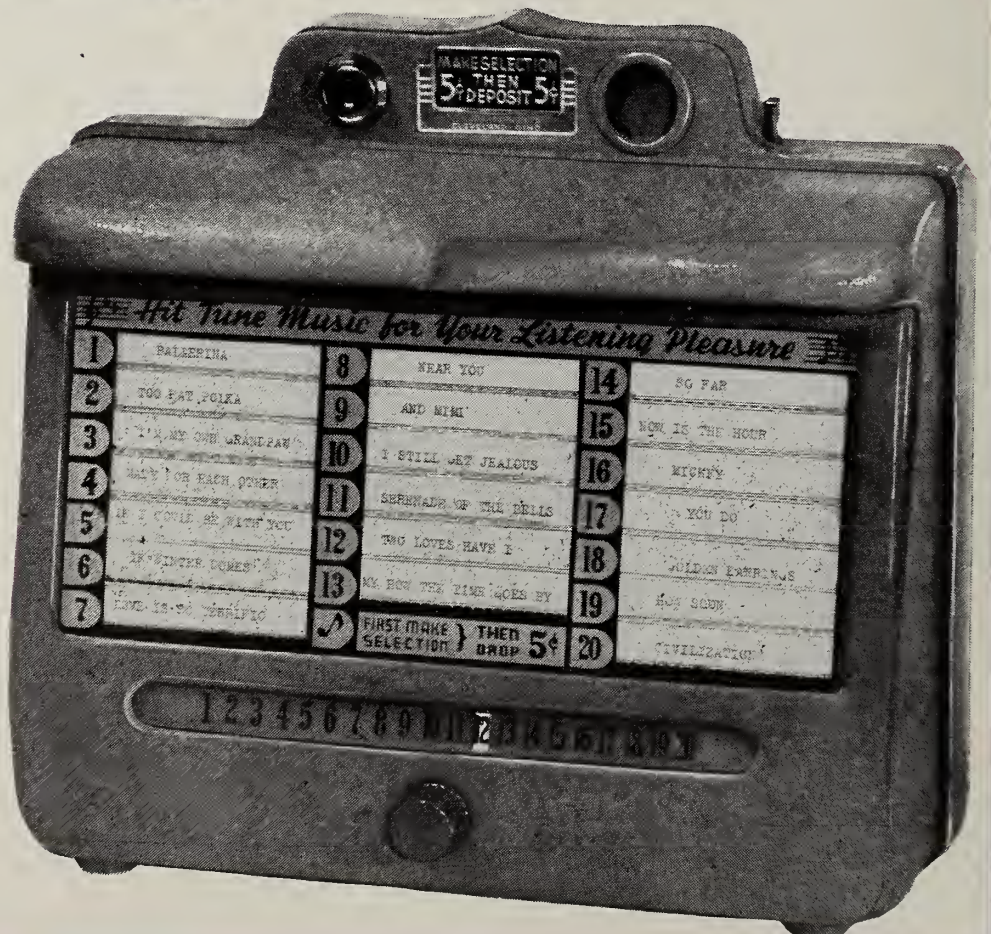 MAKE SELECTION
5¢ THEN DEPOSIT 5¢
Hit Tune Music for Your Listening Pleasure
1 BALLERINA
2 TOO FAT POLKA
3 I'M MY OWN GRANDPAW
4 MADE FOR EACH OTHER
5 IF I COULD BE WITH YOU
6 IF WINTER COMES
7 LOVE IS SO TERRIFIC
8 NEAR YOU
9 AND MIMI
10 I STILL GET JEALOUS
11 SERENADE OF THE BELLS
12 TWO LOVES HAVE I
13 MY HOW THE TIME GOES BY
FIRST MAKE SELECTION } THEN DROP 5¢
14 SO FAR
15 NOW IS THE HOUR
16 MICKEY
17 YOU DO
18 GOLDEN EARRINGS
19 HOW SOON
20 CIVILIZATION
1 2 3 4 5 6 7 8 9 10 11 12 13 14 15 16 17 18 19 20